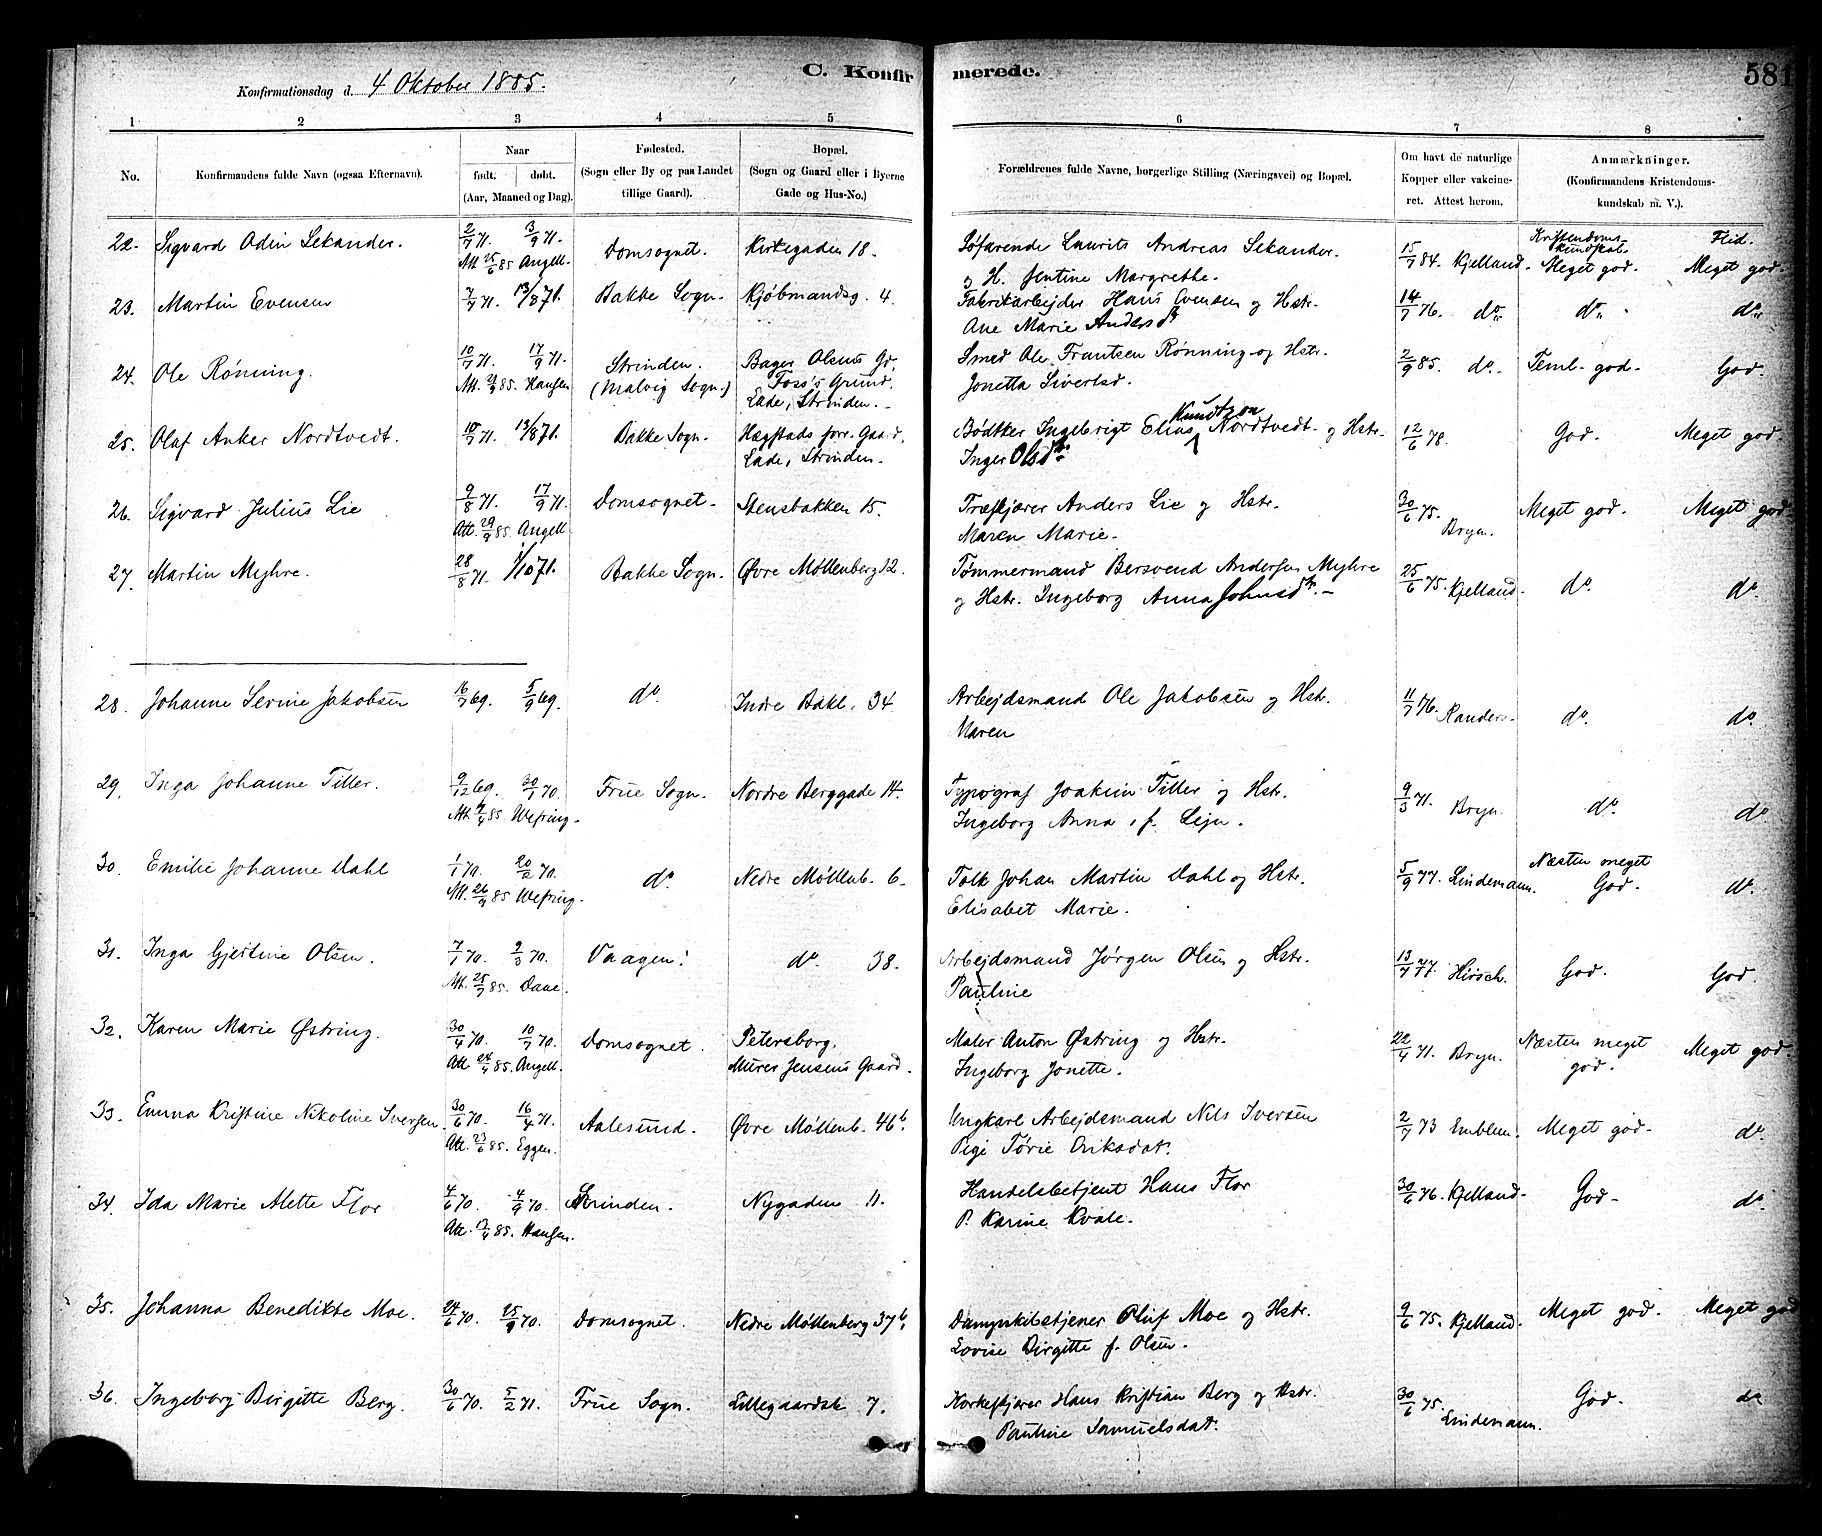 C. Konfirmerede.
581
Konfirmationsdag d. 4 Oktober 1885.
1 2 3 4 5 6 7 8
No.
Konfirmandens fulde Navn (ogsaa Efternavn).
Naar
født. døbt.
(Aar, Maaned og Dag).
Fødested.
(Sogn eller By og paa Landet
tillige Gaard).
Bopæl.
(Sogn og Gaard eller i Byerne
Gade og Hus-No.)
Forældrenes fulde Navne, borgerlige Stilling (Næringsvei) og Bopæl.
Om havt de naturlige
Kopper eller vakcine-
ret. Attest herom.
Anmærkninger.
(Konfirmandens Kristendoms-
kundskab m. V.).
Kristendoms- Flid.
kundskab
22. Sigvard Odin Sekander. 2/7 71. 3/9 71. Domsognet. Kirkegaden 18. Søfarende Laurits Andreas Sekander. 15/7 84. Kjelland. Meget god. Meget god.
Att. 25/6 85 Angell. og H. Jentine Margrethe.
23. Martin Evensen 7/7 71. 13/8 71. Bakke Sogn. Kjøbmandsg. 4. Fabrikarbejder Hans Evensen og Hstr. 14/7 76. do. do. do.
Ane Marie Andersdtr
24. Ole Rønning. 10/7 71. 17/9 71. Strinden. Bager Olsens Gd, Smed Ole Frantsen Rønning og Hstr. 2/9 85. do. Teml. god. God.
Att. 21/9 85. Hansen. (Malvig Sogn.) Foss's Grund. Jonetta Sivertsd.
Lade, Strinden.
25. Olaf Anker Nordtvedt. 10/7 71. 13/8 71. Bakke Sogn. Hægstads forr. Gaard, Bødtker Ingebrigt Elias Knudtzon Nordtvedt og Hstr. 12/6 78. God. Meget god.
Lade, Strinden. Inger Olsdtr.
26. Sigvard Julius Lie 9/8 71. 17/9 71. Domsognet. Stensbakken 15. Træskjærer Anders Lie og Hstr. 30/6 75. Bryn. Meget god. Meget god.
Att. 29/9 85. Angell Maren Marie.
27. Martin Myhre. 28/8 71. 1/10 71. Bakke Sogn. Øvre Møllenberg 12. Tømmermand Bersvend Andersen Myhre 25/6 75. Kjelland. do. do.
og Hstr. Ingeborg Anna Johnsdtr.
28. Johanne Serine Jakobsen 16/7 69. 5/9 69. do. Indre Bakl. 34. Arbejdsmand Ole Jakobsen og Hstr. 11/7 76. Randers. do. do.
Maren
29. Inga Johanne Tiller. 9/12 69. 30/1 70. Frue Sogn. Nordre Berggade 14. Typograf Joakim Tiller og Hstr. 9/3 71. Bryn. do. do.
Att. 9/4 85. Wefring. Ingeborg Anna, f. Lejn.
30. Emilie Johanne Dahl 1/1 70. 20/2 70. do. Nedre Møllenb. 6. Tolk Johan Martin Dahl og Hstr. 5/9 77. Lindemann. Næsten meget God. do.
Att. 26/9 85 Wefring. Elisabet Marie.
31. Inga Gjertine Olsen. 7/1 70. 2/3 70. Vaagen. do. 38. Arbejdsmand Jørgen Olsen og Hstr. 13/7 77. Hirsch. God. God.
Att. 25/7 85. Daae. Pauline
32. Karen Marie Østring. 30/4 70. 10/7 70. Domsognet. Petersborg. Maler Anton Østring og Hstr. 22/4 71. Bryn. Næsten meget god. Meget god.
Att. 24/4 85. Angell. Murer Jensens Gaard. Ingeborg Jonette.
33. Emma Kristine Nikoline Iversen. 30/6 70. 16/4 71. Aalesund. Øvre Møllenb. 46b. Ungkarl Arbejdsmand Nils Iversen 2/7 73 Emblem. Meget god. do.
Att. 23/6 85. Eggen. Pige Tørie Eriksdat.
34. Ida Marie Mette Flor 4/6 70. 4/9 70. Strinden. Nygaden 11. Handelsbetjent Hans Flor 30/6 76. Kjelland. God. do.
Att. 13/4 85. Hansen. P. Karine Kvale.
35. Johanna Benedikte Moe. 24/6 70. 25/9 70. Domsognet. Nedre Møllenberg 37b. Dampskibstjener Oluf Moe og Hstr. 9/6 75. Kjelland. Meget god. Meget god
Lovise Birgitte f. Olsen.
36. Ingeborg Birgitte Berg. 30/6 70. 5/2 71. Frue Sogn. Lillegaardsb. 7. Korkeskjærer Hans Kristian Berg og Hstr. 30/6 75. Lindemann. God. do
Pauline Samuelsdat.